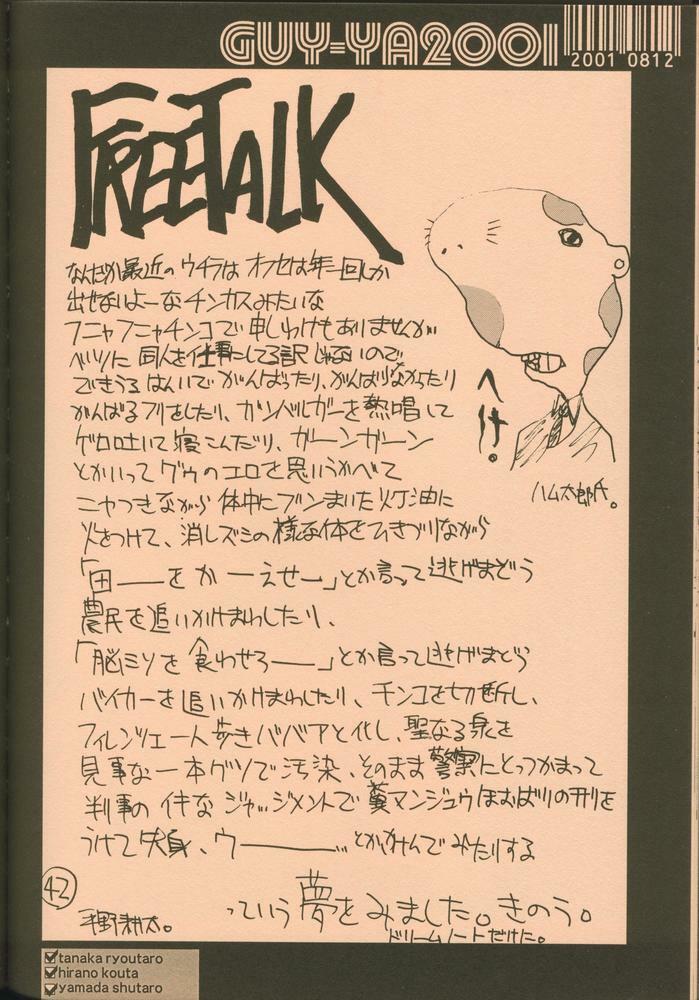 GUY-YA2001
2001 0812
FREETALK
なんだか最近のウチラは オフセは年一回しか
出せないよーなチンカスみたいな
フニャフニャチンコで申しわけもありませんが
べつに 同人を仕事にしてる訳じゃないので
できうるはんいで がんばったり、がんばらなかったり
がんばるフリをしたり、ガンバルガーを熱唱して
ゲロ吐いて寝こんだり、ガーンガーン
とかいって グゥのエロを思いうかべて
ニヤつきながら 体中にブンまいた灯油に
火をつけて、消しズミの様な体をひきづりながら
「田——を かーえせー」とか言って逃げまどう
農民を追いかけまわしたり、
「脳ミソを 食わせろ——」とか言って逃げまどう
バイカーを追いかけまわしたり、チンコを切断し、
フィレンツェ一人歩きババアと化し、聖なる泉を
見事な一本グソで汚染、そのまま警察にとっつかまって
判事の イキな ジャッジメントで 糞マンジュウほおばりの刑を
うけて失身、ウ————… とか叫んでみたりする
っていう夢をみました。きのう。
ドリームノートだけに。
へけ!
ハム太郎氏。
42
平野耕太。
tanaka ryoutaro
hirano kouta
yamada shutaro